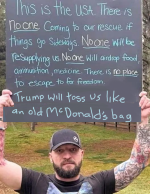 This is the USA. There is
no one. Coming to our rescue if
things go sideways. No one will be
resupplying us. No one will airdrop food
ammunition, medicine. There is no place
to escape to for freedom.
Trump will toss us like
an old McDonald's bag